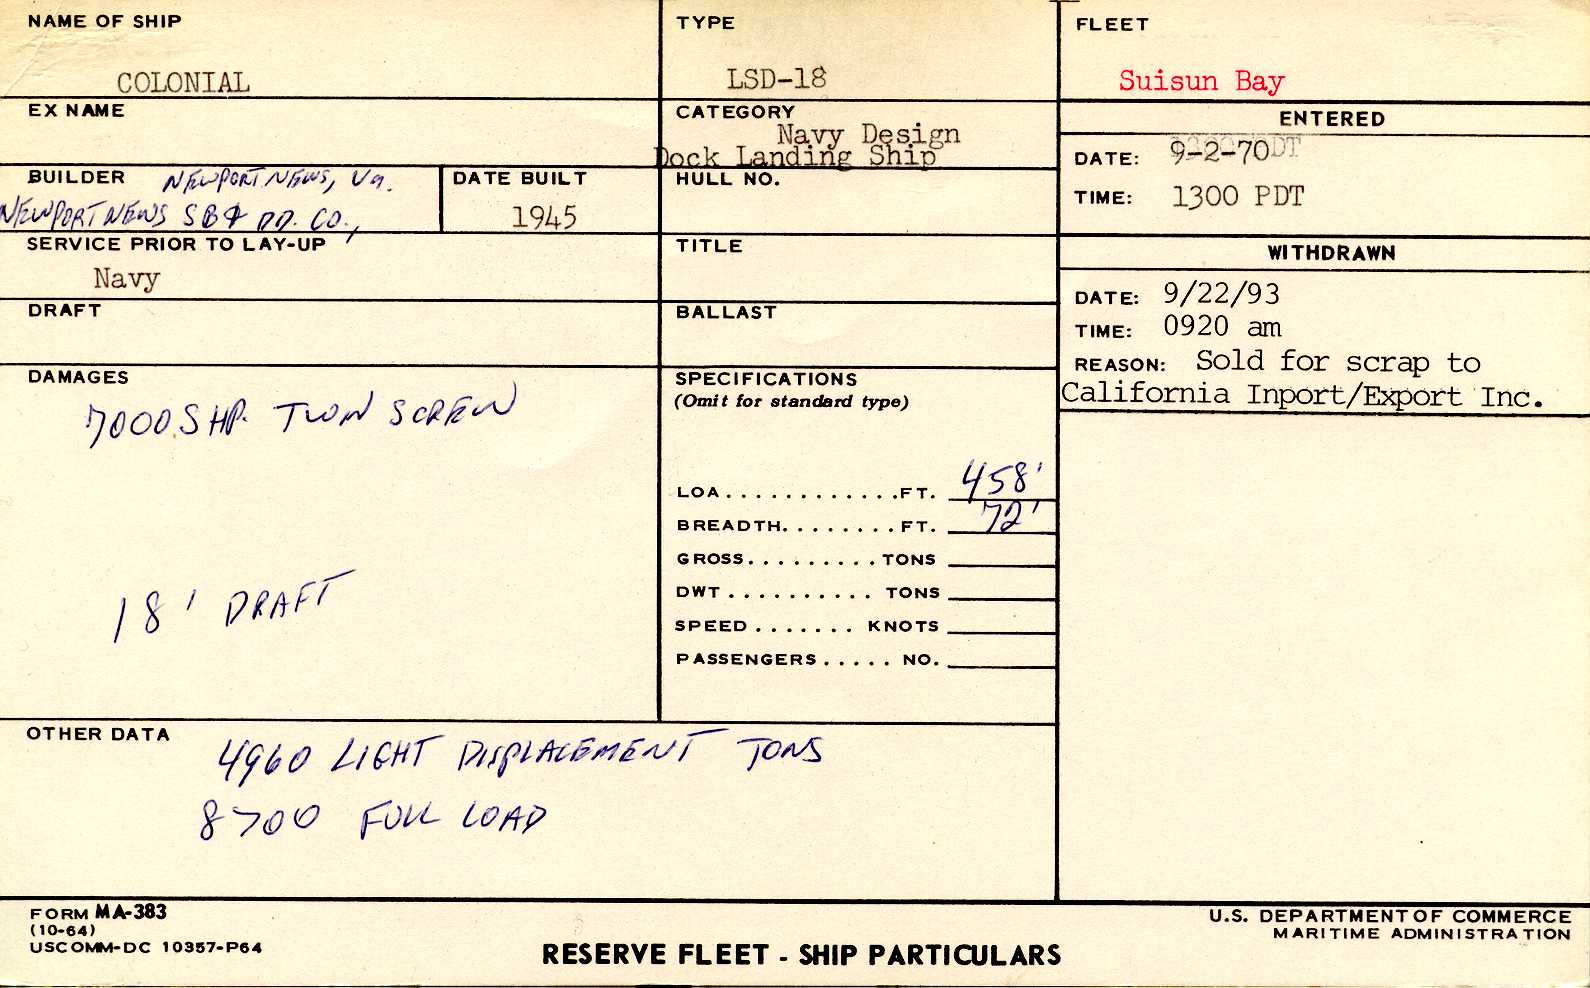 NAME OF SHIP
COLONIAL
TYPE
LSD-18
FLEET
Suisun Bay
EX NAME
CATEGORY
Navy Design
Dock Landing Ship
ENTERED
DATE: 9-2-70
TIME: 1300 PDT
BUILDER NEWPORT NEWS, Va.
NEWPORT NEWS SB & DD. CO.,
DATE BUILT
1945
HULL NO.
SERVICE PRIOR TO LAY-UP
Navy
TITLE
WITHDRAWN
DATE: 9/22/93
TIME: 0920 am
REASON: Sold for scrap to
California Inport/Export Inc.
DRAFT
BALLAST
DAMAGES
7000 SHP. TWIN SCREW
18' DRAFT
SPECIFICATIONS
(Omit for standard type)
LOA . . . . . . . . . . . . . FT. 458'
BREADTH. . . . . . . . FT. 72'
GROSS. . . . . . . . . . TONS
DWT . . . . . . . . . . TONS
SPEED . . . . . . . KNOTS
PASSENGERS . . . . . NO.
OTHER DATA
4960 LIGHT DISPLACEMENT TONS
8700 FULL LOAD
FORM MA-383
(10-64)
USCOMM-DC 10357-P64
RESERVE FLEET - SHIP PARTICULARS
U.S. DEPARTMENT OF COMMERCE
MARITIME ADMINISTRATION